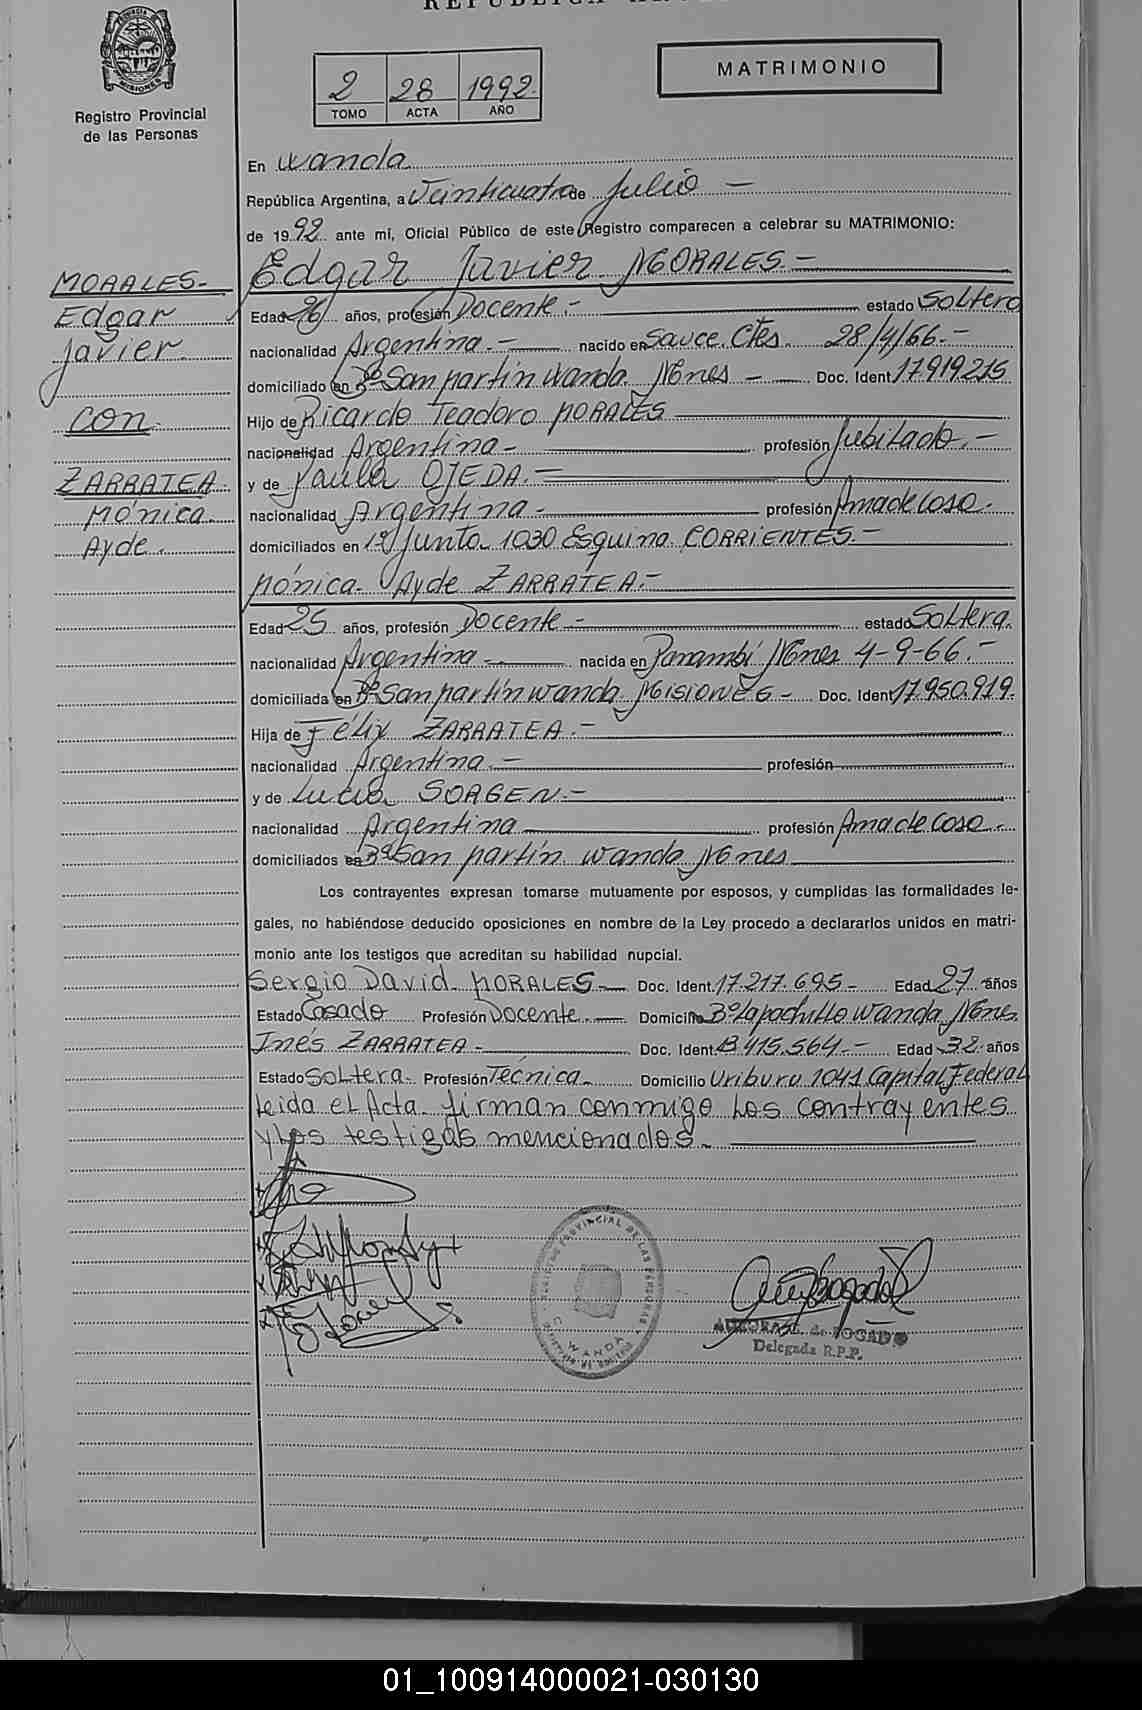 PROVINCIA
MISIONES
Registro Provincial
de las Personas
2 28 1992
TOMO ACTA AÑO
MATRIMONIO
En Wanda
República Argentina, a Veinticuatro de Julio —
de 1992 ante mí, Oficial Público de este Registro comparecen a celebrar su MATRIMONIO:
Edgar Javier MORALES.—
MORALES.-
Edgar
Javier.
Con
ZARRATEA
Mónica.
Ayde.
Edad 26 años, profesión Docente.- estado Soltero
nacionalidad Argentina.- nacido en Sauce. Ctes. 28/4/66.-
domiciliado en Bº San Martín Wanda. Mnes — Doc. Ident 17.919.215
Hijo de Ricardo Teodoro MORALES
nacionalidad Argentina- profesión Jubilado.-
y de Paula OJEDA.-
nacionalidad Argentina- profesión Ama de Casa-
domiciliados en 1º Junta 1030 Esquina. CORRIENTES.-
Mónica Ayde ZARRATEA.-
Edad 25 años, profesión Docente- estado Soltera.
nacionalidad Argentina- nacida en Panambí Mnes 4-9-66.-
domiciliada en Bº San Martín Wanda, MISIONES- Doc. Ident 17.950.919.
Hija de Félix ZARRATEA.-
nacionalidad Argentina.- profesión
y de Lucía SORGEN.-
nacionalidad Argentina profesión Ama de Casa.-
domiciliados en Bº San Martín. Wanda Mnes
Los contrayentes expresan tomarse mutuamente por esposos, y cumplidas las formalidades le-
gales, no habiéndose deducido oposiciones en nombre de la Ley procedo a declararlos unidos en matri-
monio ante los testigos que acreditan su habilidad nupcial.
Sergio David MORALES- Doc. Ident. 17.217.695- Edad 27 años
Estado Casado Profesión Docente.- Domicilio Bº Lapachillo Wanda Mnes.
Inés ZARRATEA- Doc. Ident. 13.415.564.- Edad 32 años
Estado Soltera. Profesión Técnica. Domicilio Uriburu 1041 Capital Federal
Leida el Acta. firman conmigo Los contrayentes
y Los testigos mencionados.
REGISTRO PROVINCIAL DE LAS PERSONAS
WANDA
Delegada R.P.P.
01_100914000021-030130